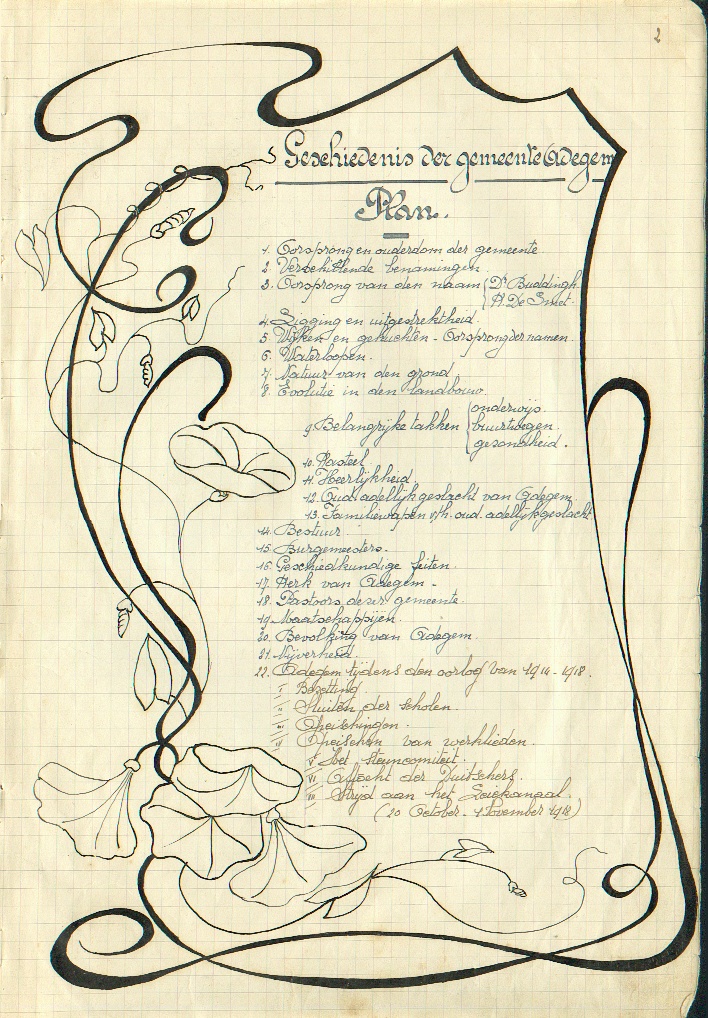 2
Geschiedenis der gemeente Adegem
Plan.
1. Oorsprong en ouderdom der gemeente
2. Verschillende benamingen.
3. Oorsprong van den naam { Dr Buddingh
H. De Smet.
4. Ligging en uitgestrektheid.
5. Wijken en gehuchten - Oorsprong der namen.
6. Waterloopen.
7. Natuur van den grond.
8. Evolutie in den landbouw.
9. Belangrijke takken { onderwijs.
buurtwegen.
gezondheid.
10. Kasteel
11. Heerlijkheid.
12. Oud adellijk geslacht van Adegem.
13. Familiewapen v/h. oud adellijk geslacht
14. Bestuur
15. Burgemeesters.
16. Geschiedkundige feiten.
17. Kerk van Adegem.
18. Pastoors dezer gemeente.
19. Maatschappijen.
20. Bevolking van Adegem.
21. Nijverheid.
22. Adegem tijdens den oorlog van 1914-1918.
I Bezetting.
II Sluiten der scholen.
III Opeischingen.
IV Opeischen van werklieden.
V Het steuncomiteit.
VI Aftocht der Duitschers.
VII Strijd aan het Leiekanaal.
(20 October - 1 November 1918)